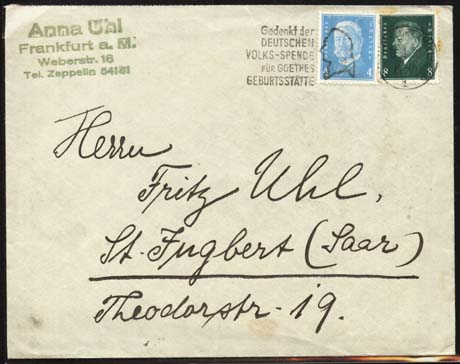 Anna Uhl
Frankfurt a. M.
Weberstr. 16
Tel. Zeppelin 54181
Gedenkt der
DEUTSCHEN
VOLKS-SPENDE
FÜR GOETHES
GEBURTSSTÄTTE
4
8 8
Herrn
Fritz Uhl,
St. Ingbert (Saar)
Theodorstr. 19.